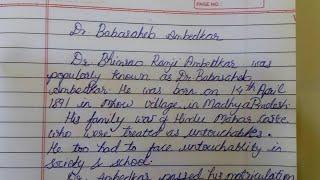 PAGE NO.
Dr. Babasaheb Ambedkar
Dr. Bhimrao Ramji Ambedkar was
popularly known as Dr. Babasaheb
Ambedkar. He was born on 14th April
1891 in Mhow village in Madhya Pradesh.
His family was of Hindu Mahar caste
who were treated as untouchables.
He too had to face untouchability in
society & school.
Dr. Ambedkar passed his matriculation